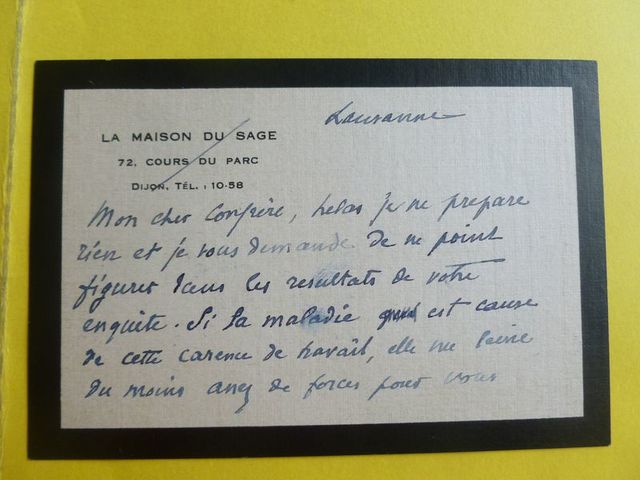 Lausanne
LA MAISON DU SAGE
72, COURS DU PARC
DIJON, TÉL. : 10-58
Mon cher Confrère, hélas je ne prépare
rien et je vous demande de ne point
figurer dans les resultats de votre
enquête. Si la maladie est cause
de cette carence de travail, elle me laisse
du moins assez de forces pour vous